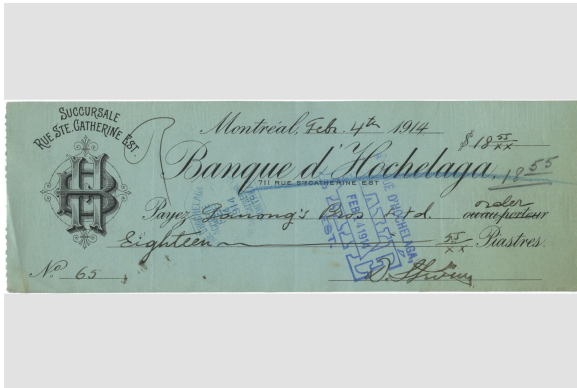 SUCCURSALE
RUE STE. CATHERINE EST.
Montréal, Febr. 4th 1914
$ 18 55/xx
Banque d'Hochelaga,
18 55
711 RUE STE CATHERINE EST
Payez Bros Ltd. order ou au porteur
Eighteen 55/xx Piastres.
BANQUE D'HOCHELAGA,
PAYÉ
FEB 4 1914
EST
No 65